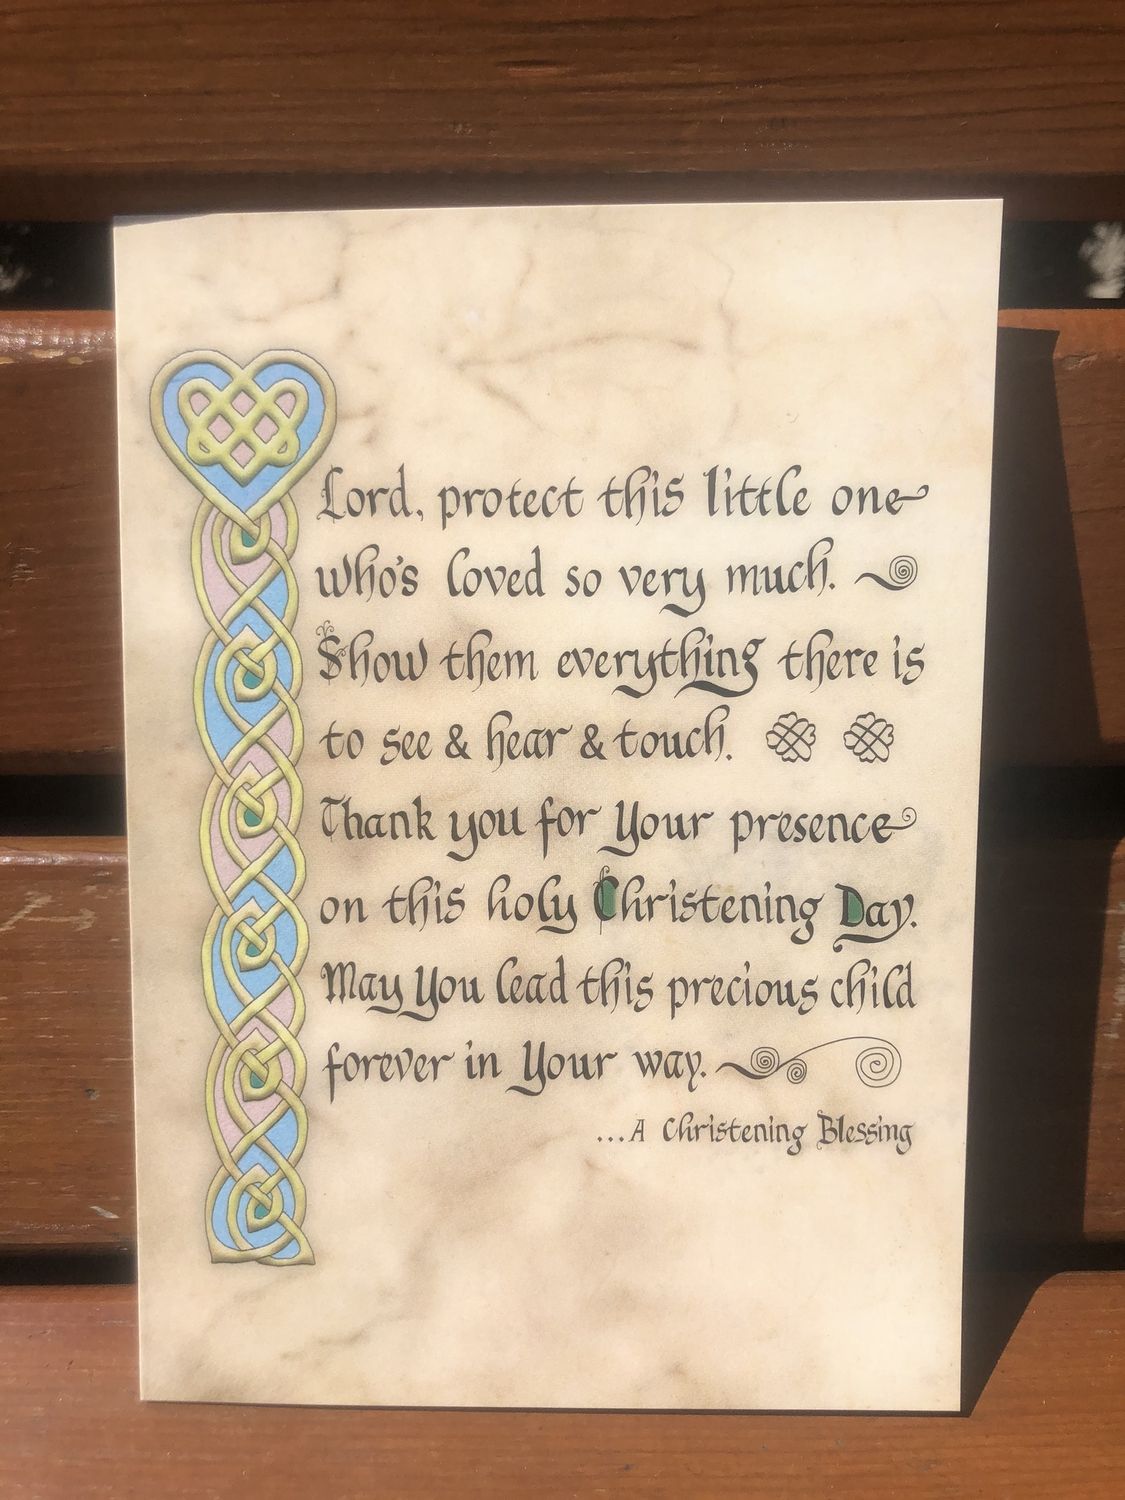 Lord, protect this little one
who's loved so very much.
Show them everything there is
to see & hear & touch.
Thank you for Your presence
on this holy Christening Day.
May You lead this precious child
forever in Your way.
...A Christening Blessing